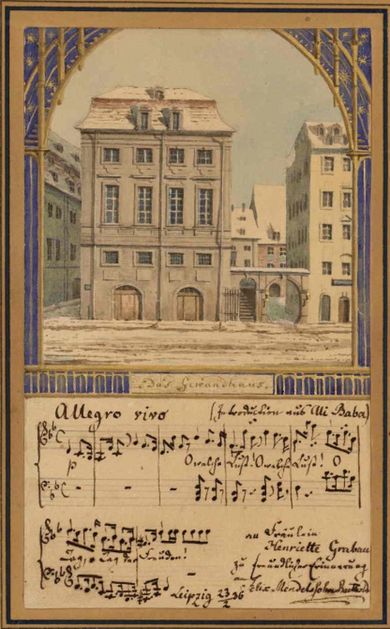 Das Gewandhaus.
Allegro vivo (Introduction aus Ali Baba)
p
O welche Lust! O welche Lust! O
Tag, o Tag der Freuden!
an Fräulein
Henriette Grabau
zu freundlicher Erinnerung
Leipzig 23/2 36
Felix Mendelssohn Bartholdy